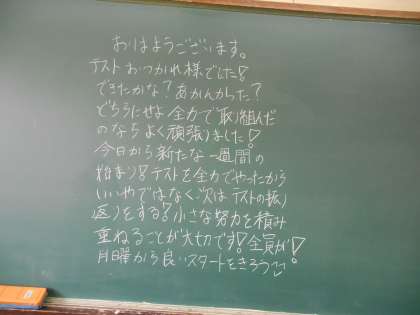 おはようございます。
テストおつかれ様でした!
できたかな?あかんかった?
どちらにせよ全力で取り組んだ
のならよく頑張りました!
今日から新たな一週間の
始まり!テストを全力でやったから
いいやではなく次はテストの振り
返りをする!小さな努力を積み
重ねることが大切です!全員が!
月曜から良いスタートをきろう